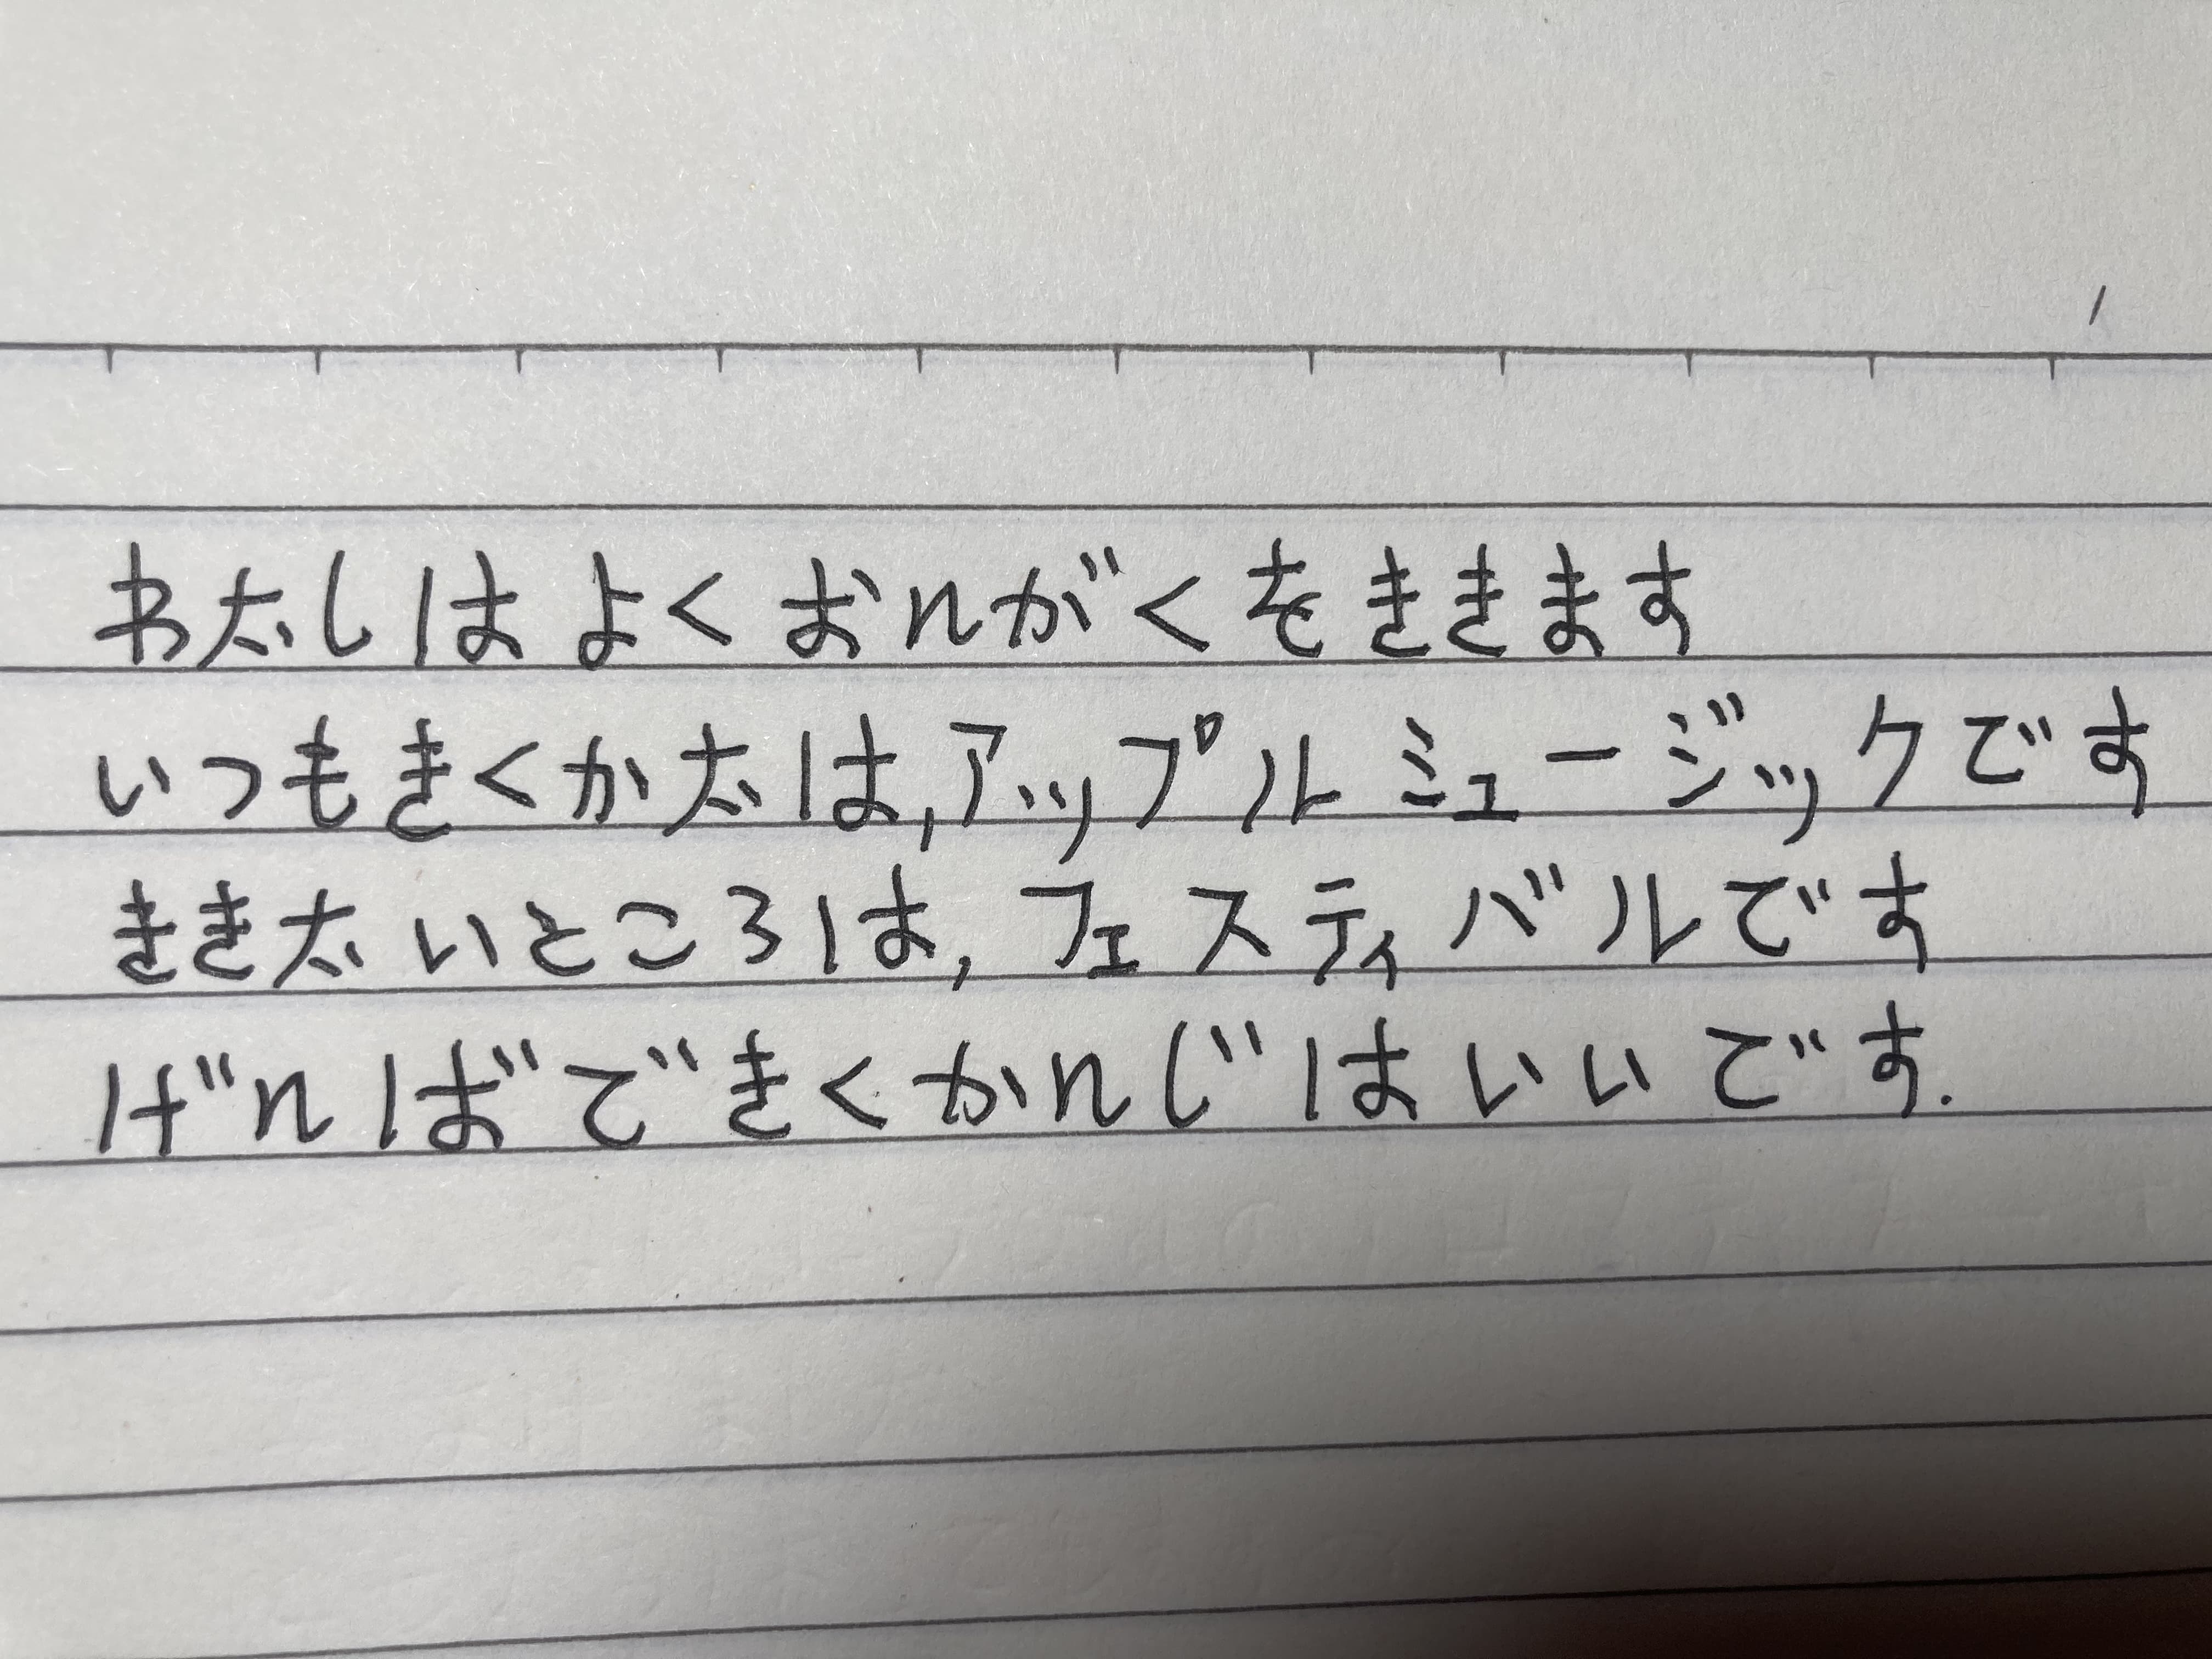 わ太しはよくおんがくをききます
いつもきくか太は,アップルミュージックです
きき太いところは,フェスティバルです
げんばできくかんじはいいです.